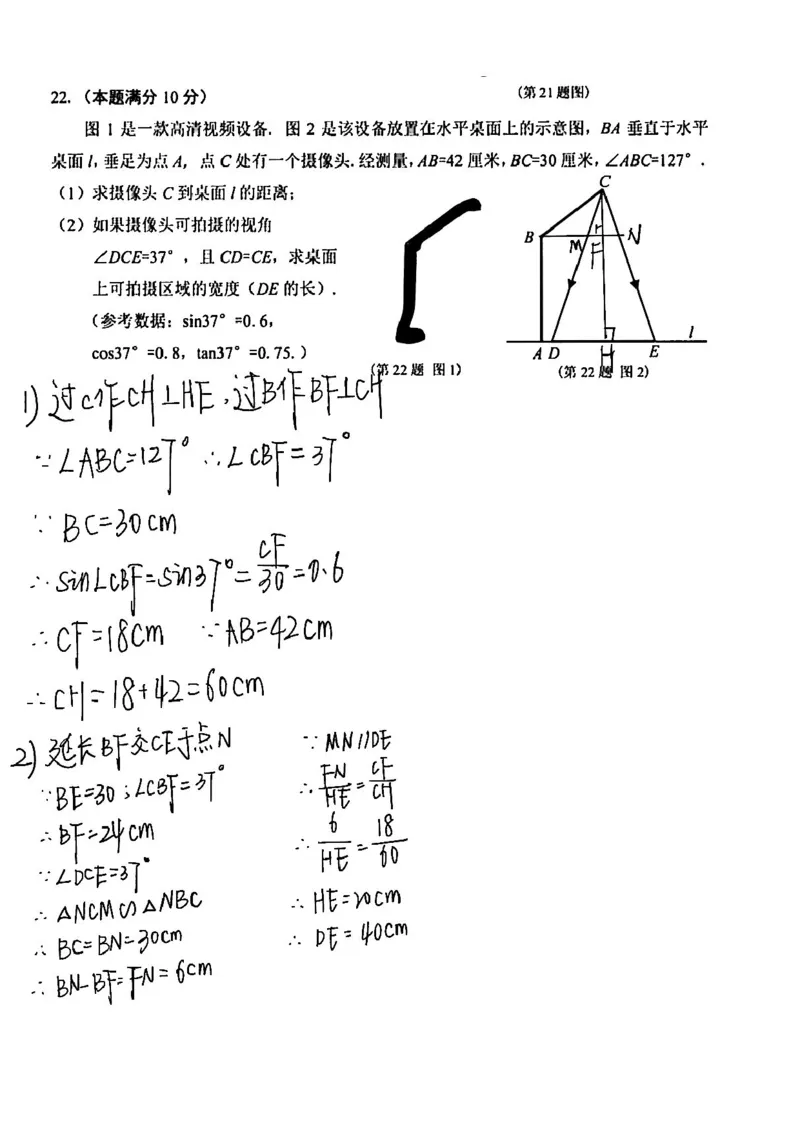 (第21题图)
22. (本题满分 10 分)
图 1 是一款高清视频设备. 图 2 是该设备放置在水平桌面上的示意图, BA 垂直于水平
桌面 l, 垂足为点 A, 点 C 处有一个摄像头. 经测量, AB=42 厘米, BC=30 厘米, ∠ABC=127°.
(1) 求摄像头 C 到桌面 l 的距离;
(2) 如果摄像头可拍摄的视角
∠DCE=37°, 且 CD=CE, 求桌面
上可拍摄区域的宽度 (DE 的长).
(参考数据: sin37°=0.6,
cos37°=0.8, tan37°=0.75.)
C
B M F N
A D H E l
(第 22 题 图 1)
(第 22 题 图 2)
1) 过C作CH⊥HE,过B作BF⊥CH
∵∠ABC=127° ∴∠CBF=37°
∵ BC=30cm
∴ sin∠CBF=sin37°=CF/30=0.6
∴ CF=18cm ∵AB=42cm
∴ CH=18+42=60cm
2) 延长BF交CE于点N
∵BE=30;∠CBF=37°
∴BF=24cm
∵∠DCE=37°
∴ △NCM∽△NBC
∴ BC=BN=30cm
∴ BN-BF=FN=6cm
∵ MN//DE
∴ FN/HE=CF/CH
∴ 6/HE=18/60
∴ HE=20cm
∴ DE=40cm